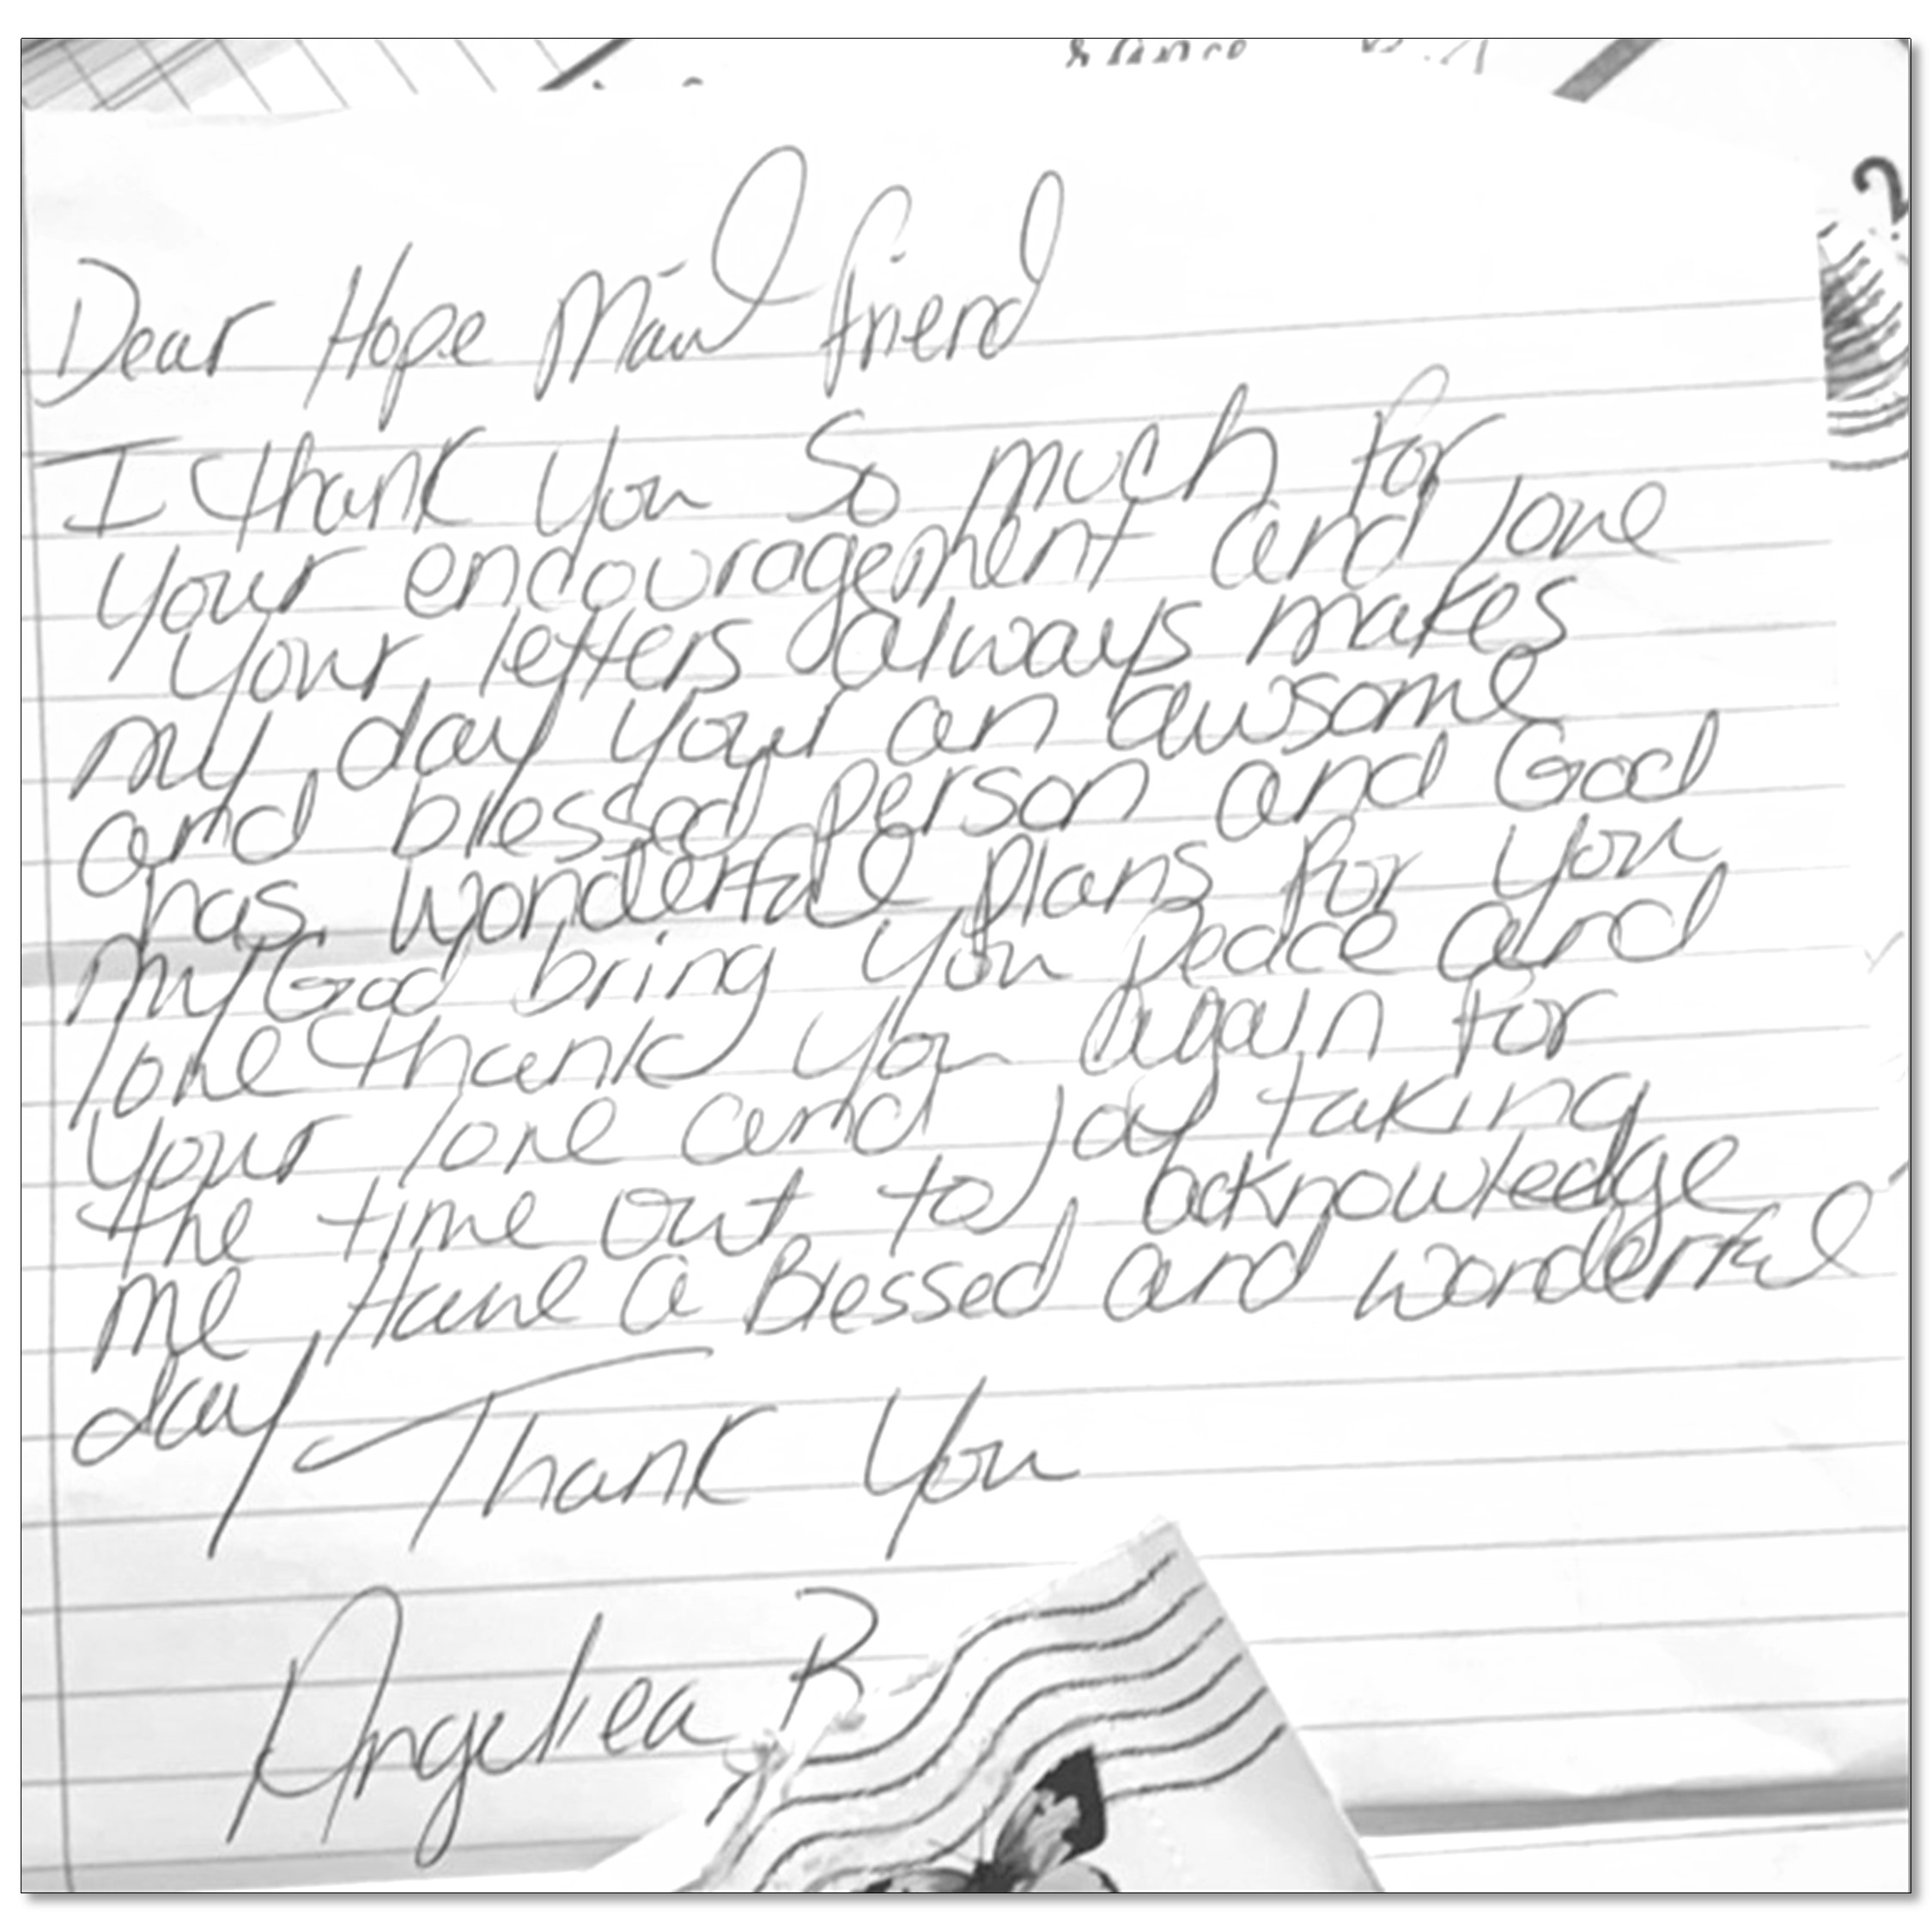 Dear Hope Mail friend
I thank you So much for
your encouragement and love
your letters always makes
my day your an awsome
and blessed person and God
has wonderful plans for you
my God bring you peace and
love thank you Again for
your love and joy taking
the time out to acknowledge
me Have a Blessed and wonderful
day Thank You
Angelica R